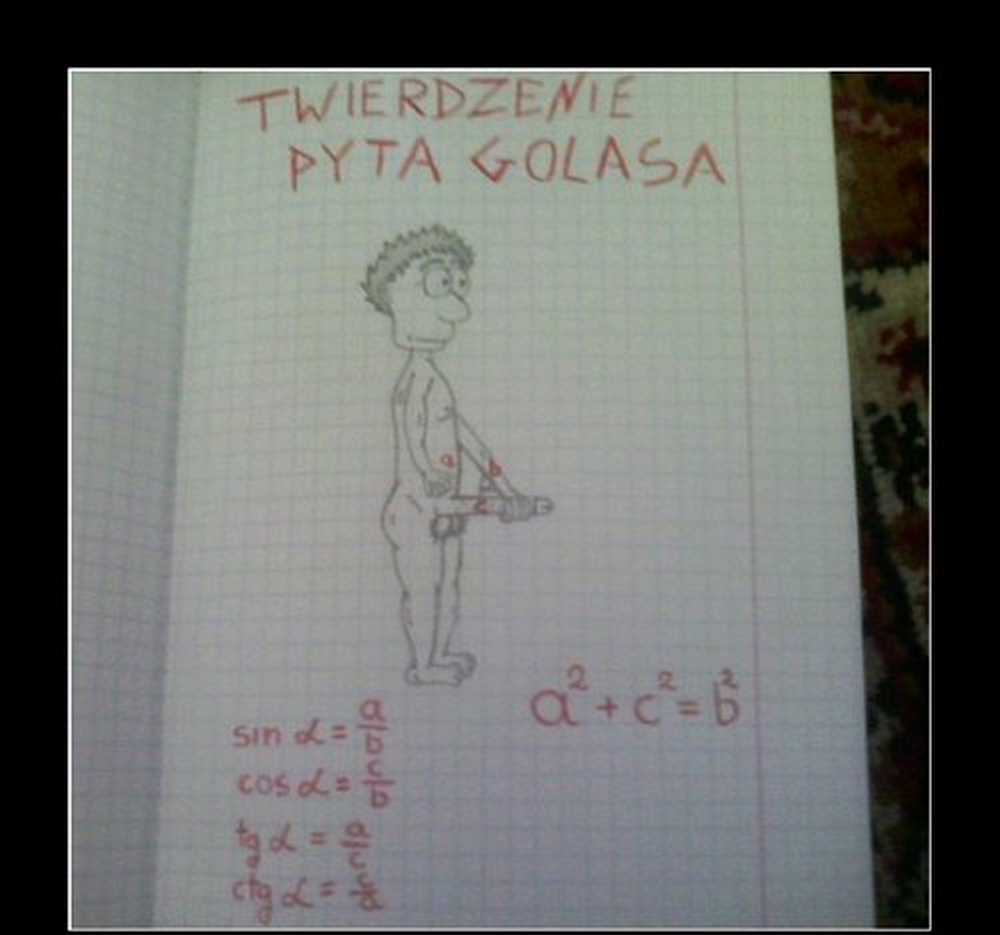 TWIERDZENIE
PYTA GOLASA
a
b
c
a² + c² = b²
sin α = a/b
cos α = c/b
tg α = a/c
ctg α = c/a